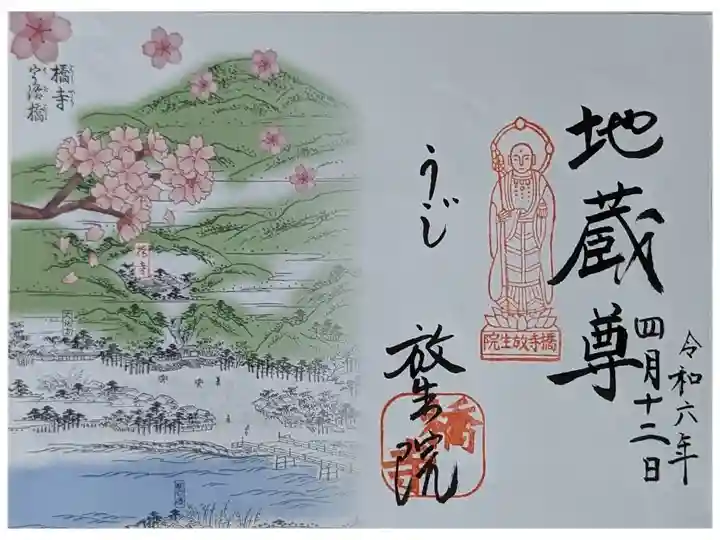 令和六年
四月十二日
地蔵尊
橋寺放生院
うじ
放生院
橋寺
橋寺
宇治橋
橋寺